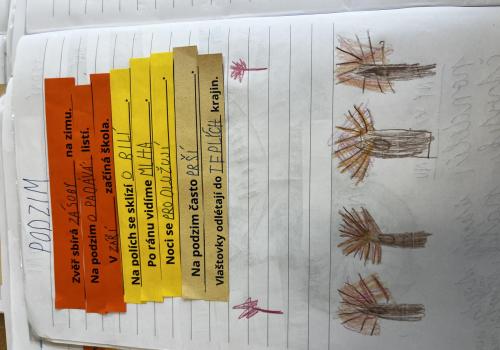 PODZIM
Zvěř sbírá ZÁSOBY na zimu.
Na podzim O PADAVÁ listí.
V ZÁŘÍ začíná škola.
Na polích se sklízí O BILÍ.
Po ránu vidíme MLHA.
Noci se PRODLUŽUJÍ.
Na podzim často PRŠÍ.
Vlaštovky odlétají do TEPLÝCH krajin.